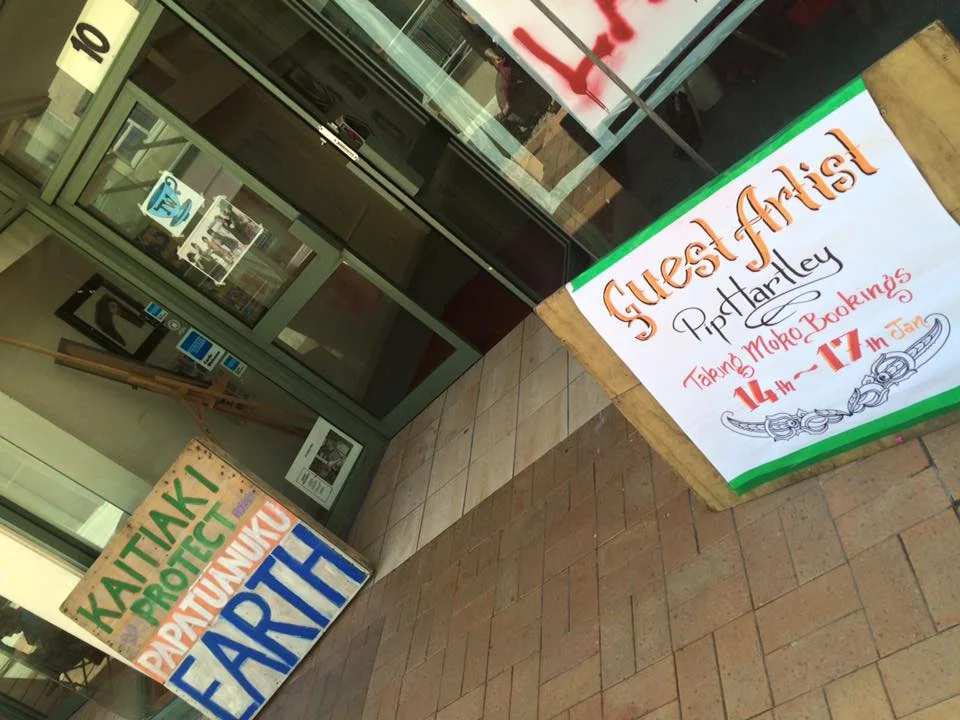 10
TW
Guest Artist
Pip Hartley
Taking Moko Bookings
14th ~ 17th Jan
KAITIAKI
PROTECT
PAPATUANUKU
EARTH